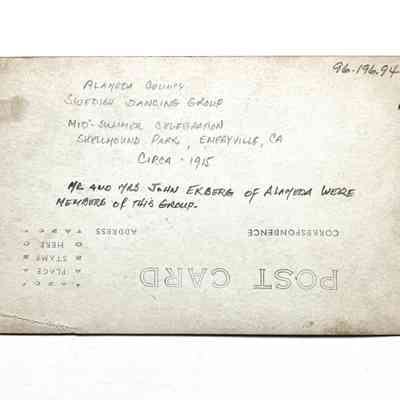 96.196.94
ALAMEDA COUNTY
SWEDISH DANCING GROUP
MID-SUMMER CELEBRATION
SHELLMOUND PARK, EMERYVILLE, CA
CIRCA - 1915
MR AND MRS JOHN EKBERG OF ALAMEDA WERE
MEMBERS OF THIS GROUP.
POST CARD
CORRESPONDENCE
ADDRESS
PLACE
STAMP
HERE